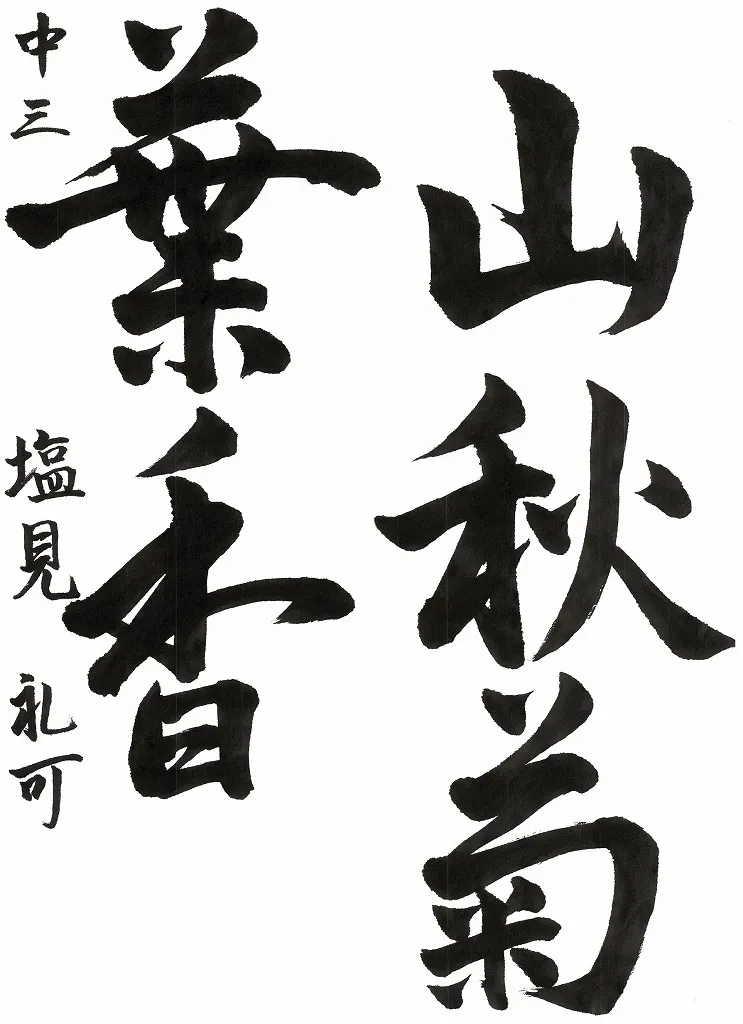 山秋菊
葉香
中三 塩見 礼可